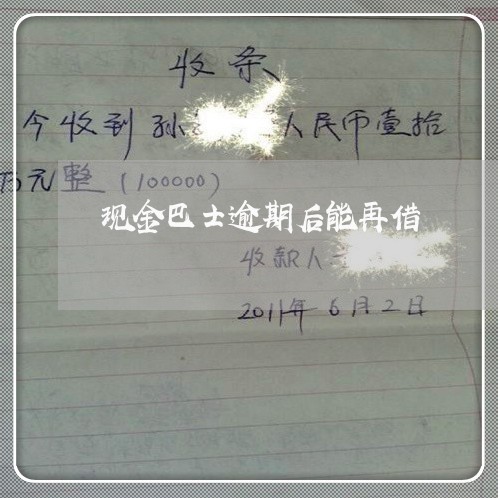 收条
今收到孙 人民币壹拾
万元整(100000)
现金巴士逾期后能再借
收款人
2011年6月2日